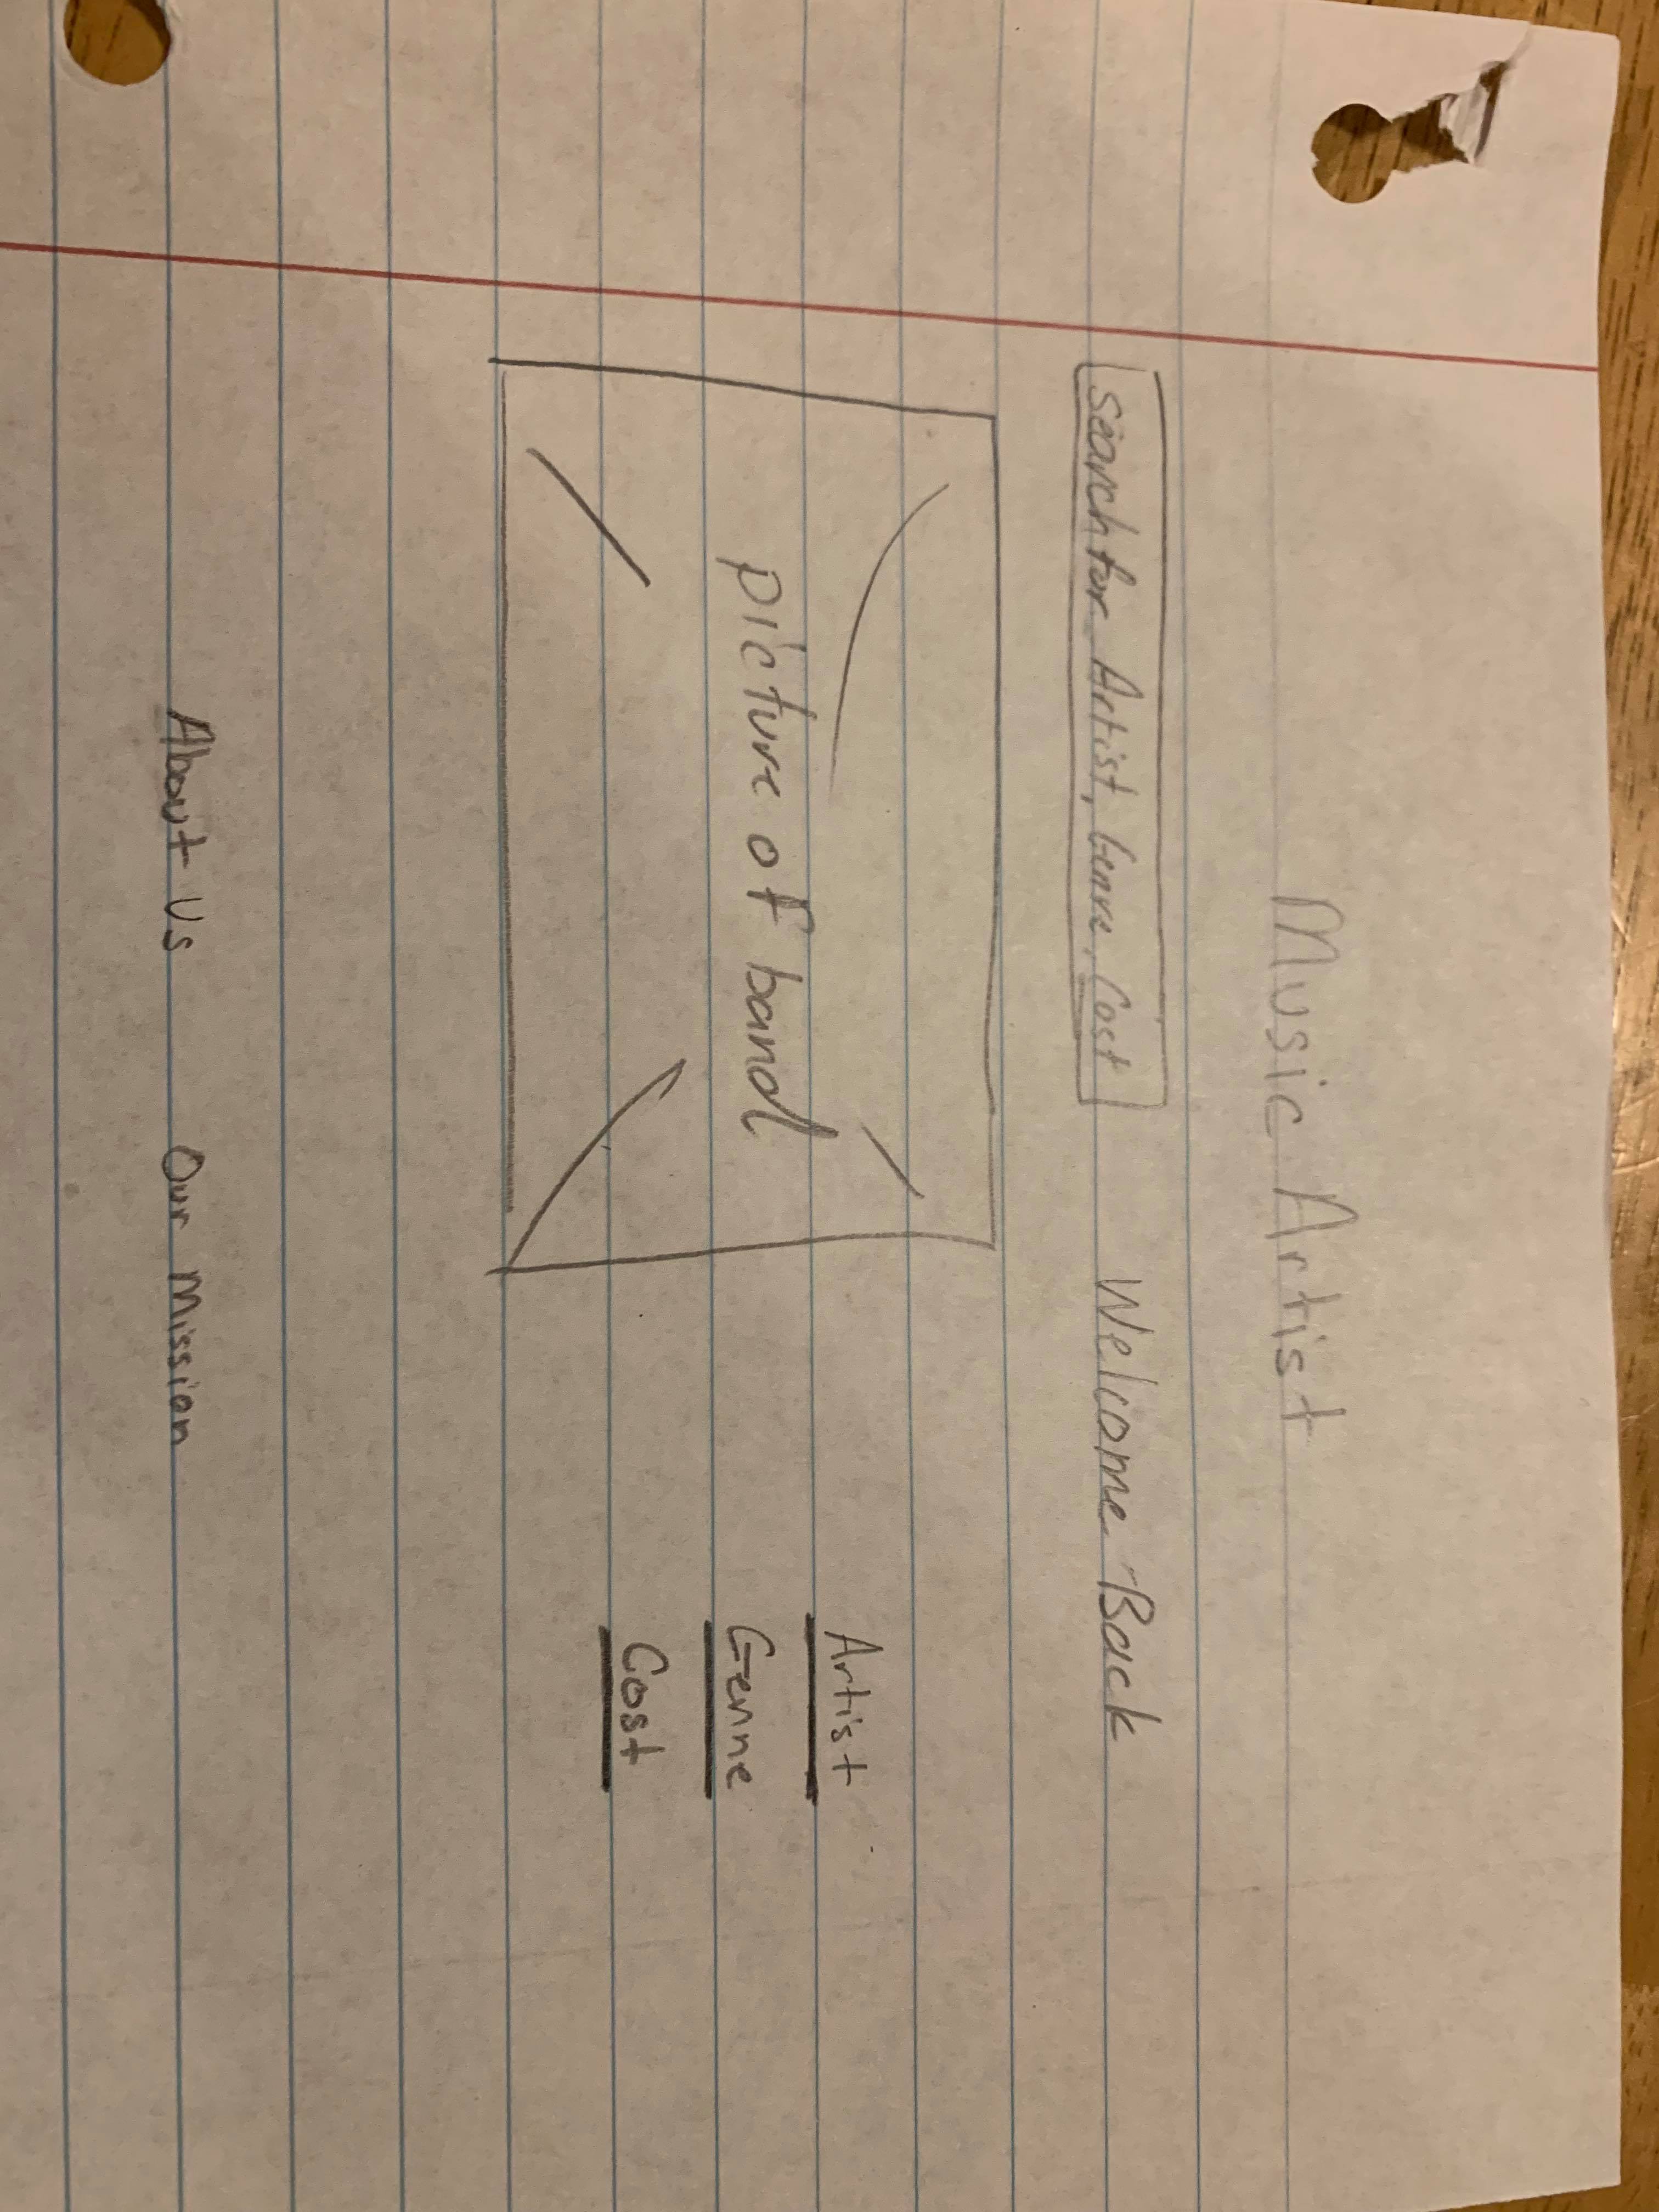 Music Artist
Search for Artist, Genre, Cost Welcome Back
picture of band
Artist
Genne
Cost
About Us Our Mission